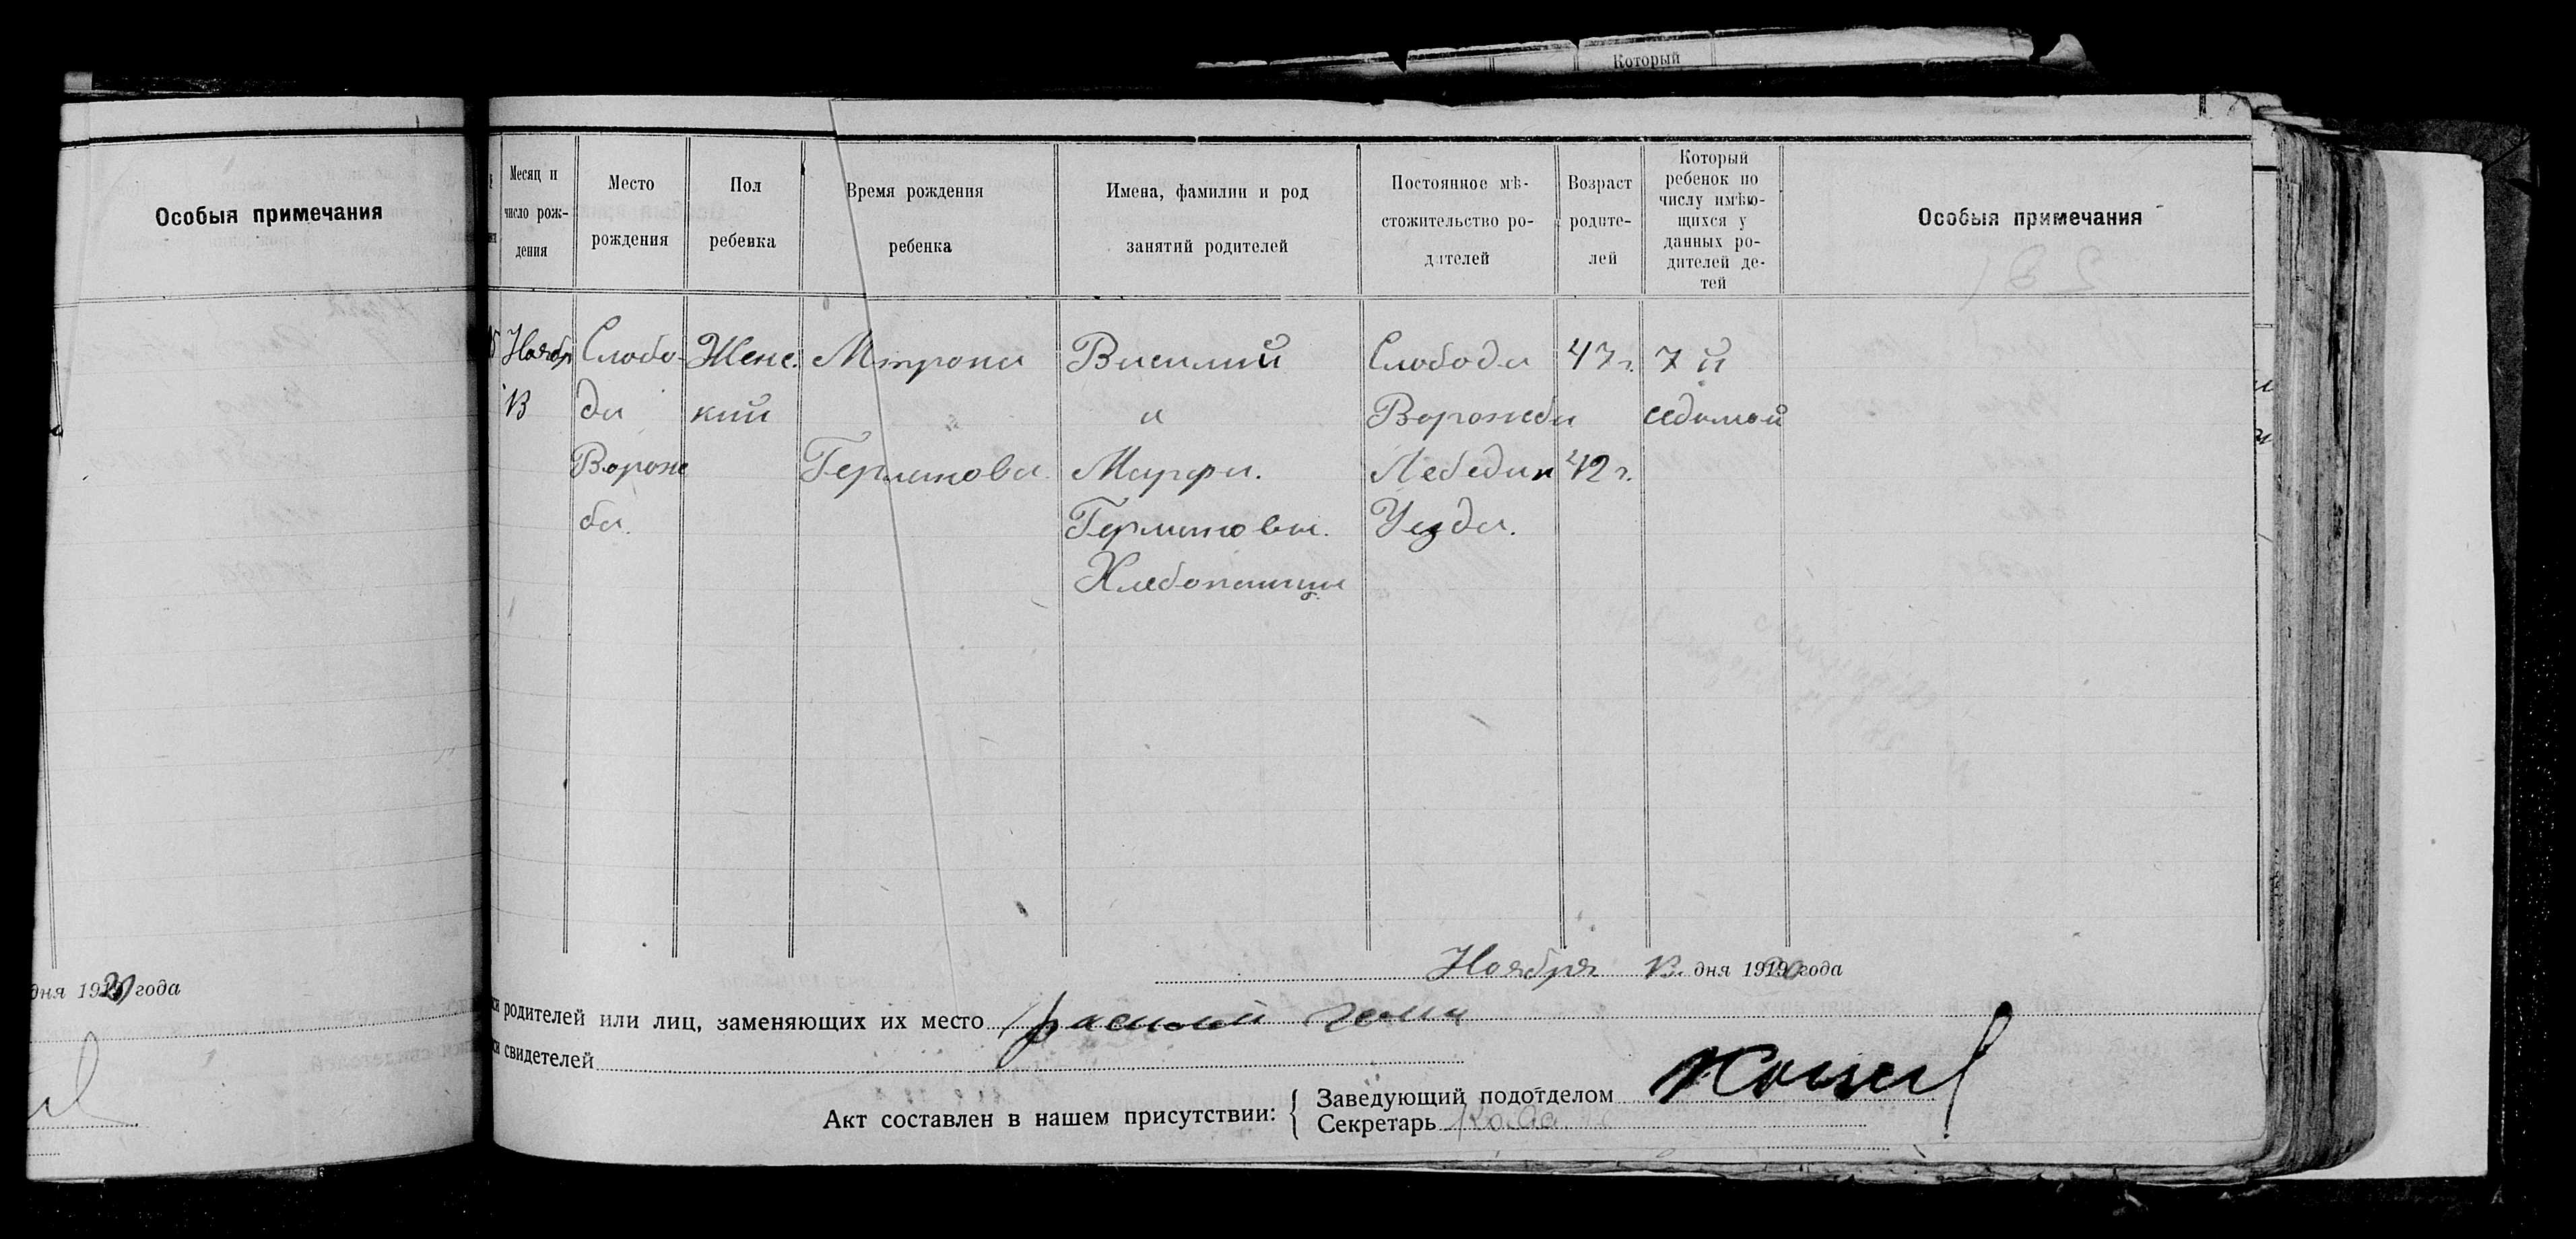 Который
Особыя примечания
дня 1920 года
Месяц и
число рож-
дения
Место
рождения
Пол
ребенка
Время рождения
ребенка
Имена, фамилии и род
занятий родителей
Постоянное мѣ-
стожительство ро-
дителей
Возраст
родите-
лей
Который
ребенок по
числу имѣю-
щихся у
данных ро-
дителей де-
тей
Особыя примечания
Ноябр
13
Слобо-
да
Ворож
ба.
Женс.
кий
Мтрона
Германова.
Василий
и
Марфа.
Германовы.
Хлебопашцы
Слобода
Ворожба
Лебедин
Уезда.
47 г.
42 г.
7 й
седьмой
Ноября 13. дня 1920 года
родителей или лиц, заменяющих их место
свидетелей
Акт составлен в нашем присутствии:
Заведующий подотделом
Секретарь